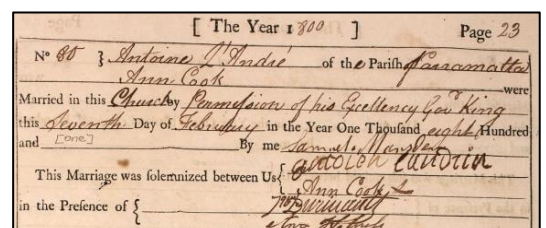 [ The Year 1800 ] Page 23
No 80 } Antoine L'André of the Parish Parramatta
Ann Cook were
Married in this Church by Permission of his Excellency Govr King
this Seventh Day of February in the Year One Thousand eight Hundred
and [one] By me Samuel Marsden
This Marriage was solemnized between Us {
Ann Cook X
in the Presence of {